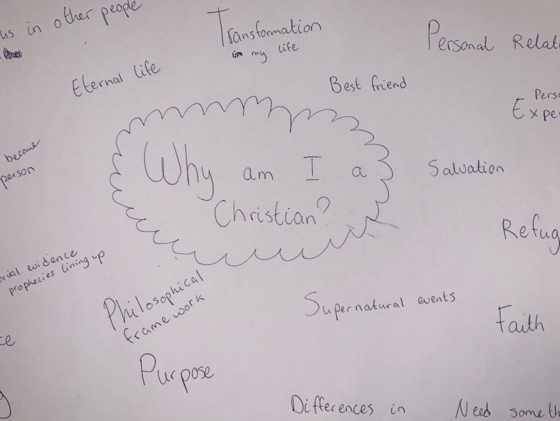 us in other people
Transformation
in my life
Personal Relati
Eternal life
Best friend
Pers
Expe
become
person
Why am I a
Christian?
Salvation
Refug
evidence
prophecies lining up
Philosophical
framework
Supernatural events
Faith
Purpose
Differences in
Need someth